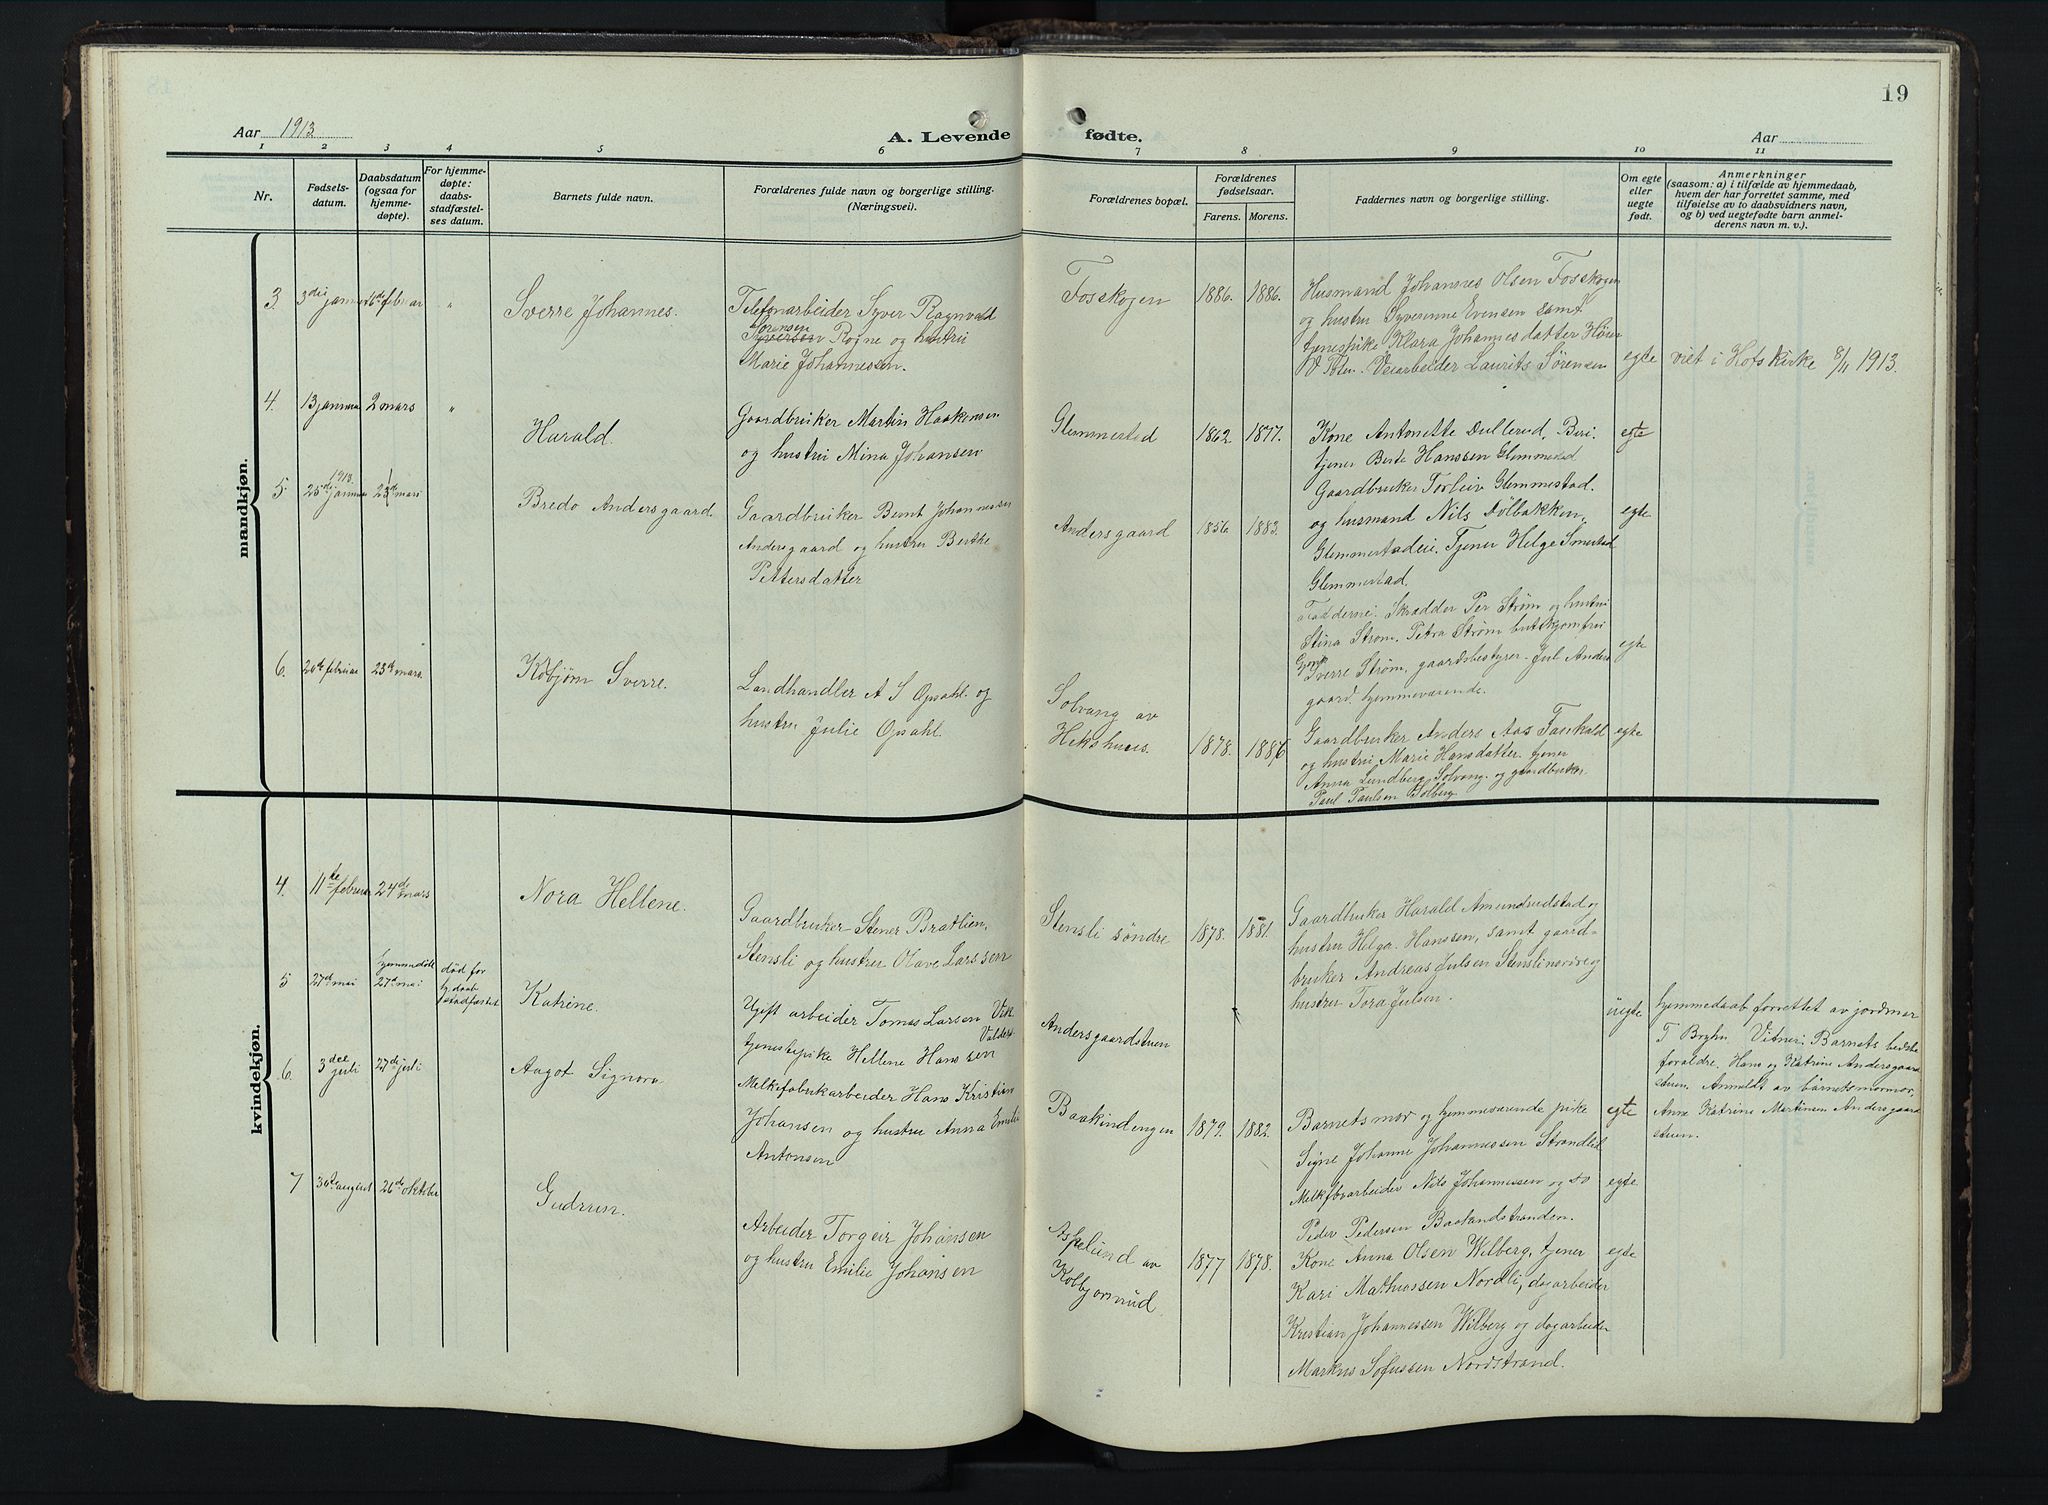 19
Aar 1913
A. Levende fødte.
Aar
1 2 3 4 5 6 7 8 9 10 11
Nr.
Fødsels-
datum.
Daabsdatum
(ogsaa for
hjemme-
døpte).
For hjemme-
døpte:
daabs-
stadfæstel-
ses datum.
Barnets fulde navn.
Forældrenes fulde navn og borgerlige stilling.
(Næringsvei).
Forældrenes bopæl.
Forældrenes
fødselsaar.
Farens. Morens.
Faddernes navn og borgerlige stilling.
Om egte
eller
uegte
født.
Anmerkninger
(saasom: a) i tilfælde av hjemmedaab,
hvem der har forrettet samme, med
tilføielse av to daabsvidners navn,
og b) ved uegtefødte barn anmel-
derens navn m. v.).
mandkjøn.
3. 3die januar 16de februar "
Sverre Johannes.
Telefonarbeider Syver Ragnvald
Sørensen
Syversen Rogne og hustru
Marie Johannessen.
Fosskogen
1886. 1886.
Husmand Johannes Olsen Fosskogen
og hustru Syverinne Evensen samt
tjenespike Klara Johannesdatter
V Toten. Veiarbeider Laurits Sørensen
egte
viet i Hofs kirke 8/11 1913.
4. 13 januar 2 mars "
Harald.
Gaardbruker Martin Haakensen
og hustru Mina Johansen
Glemmestad
1862. 1877.
Kone Antonette Dullerud, Biri.
tjener Berte Hanssen Glemmestad
Gaardbruker Torleiv Glemmestad.
og husmand Nils Dølbakken,
Glemmestadeie. Tjener Helge Smestad
Glemmestad.
egte
5. 1913. 25de januar 23de mars
Bredo Andersgaard.
Gaardbruker Bernt Johannessen
Andersgaard og hustru Berthe
Pettersdatter
Andersgaard
1856. 1883.
egte
Fadderne: Skrædder Per Strøm og hustru
Stina Strøm, Petra Strøm butikjomfru
Sverre Strøm, gaardsbestyrer. Jul Anders
gaard. hjemmeværende.
egte
6. 20de februar 23de mars.
Kolbjørn Sverre.
Landhandler A S Opsahl og
hustru Julie Opsahl.
Solvang av
Hekshuus.
1878. 1886
Gaardbruker Anders Aas Faukald
og hustru Marie Hansdatter. tjener
Anna Lundberg Solvang. og gaardbruker
Paul Paulsen Solberg
egte
kvindekjøn.
4. 11te februar 24de mars
Nora Hellene.
Gaardbruker Stener Bratlien,
Stensli og hustru Olave Larssen
Stensli søndre
1878. 1881.
Gaardbruker Harald Amundrudstad og
hustru Helga Hanssen, samt gaard-
bruker Andreas Julsen Stenslinordre og
hustru Tora Julsen.
5 27de mai hjemmedøbt 27de mai
død før
hj. daab
stadfæstet
Katrine.
Ugift arbeider Tomas Larsen Vik
Valdres
tjenestepike Hellene Hanssen
Andersgaardstuen
uegte
hjemmedaab forrettet av jordmor
T Bryhn. Vitner: Barnets bedste
foraldre. Hans og Katrine Andersgaard
stuen. Anmeldt av barnetsmormor,
Anne Katrine Martinsen Andersgaard
stuen.
6. 3dee juli 27de juli
Aagot Signora
Melkefabrikarbeider Hans Kristian
Johansen og hustru Anna Emilie
Antonsen
Baakindengen
1879. 1882.
Barnetsmor og hjemmeværende pike
Signe Johanne Johannessen Strandlid
Melkfbrarbeider Nils Johannessen og do
Peder Pedersen Baalandstranden.
egte
egte
7 30te august 26de oktober
Gudrun.
Arbeider Torgeir Johansen
og hustru Emilie Johansen
Aspelund av
Kolbjørnrud.
1877 1878.
Kone Anna Olsen Wilberg, tjener
Kari Mathiassen Nordli, dagarbeider
Kristian Johannessen Wilberg og dagarbeider
Markus Sofussen Nordstrand.
egte